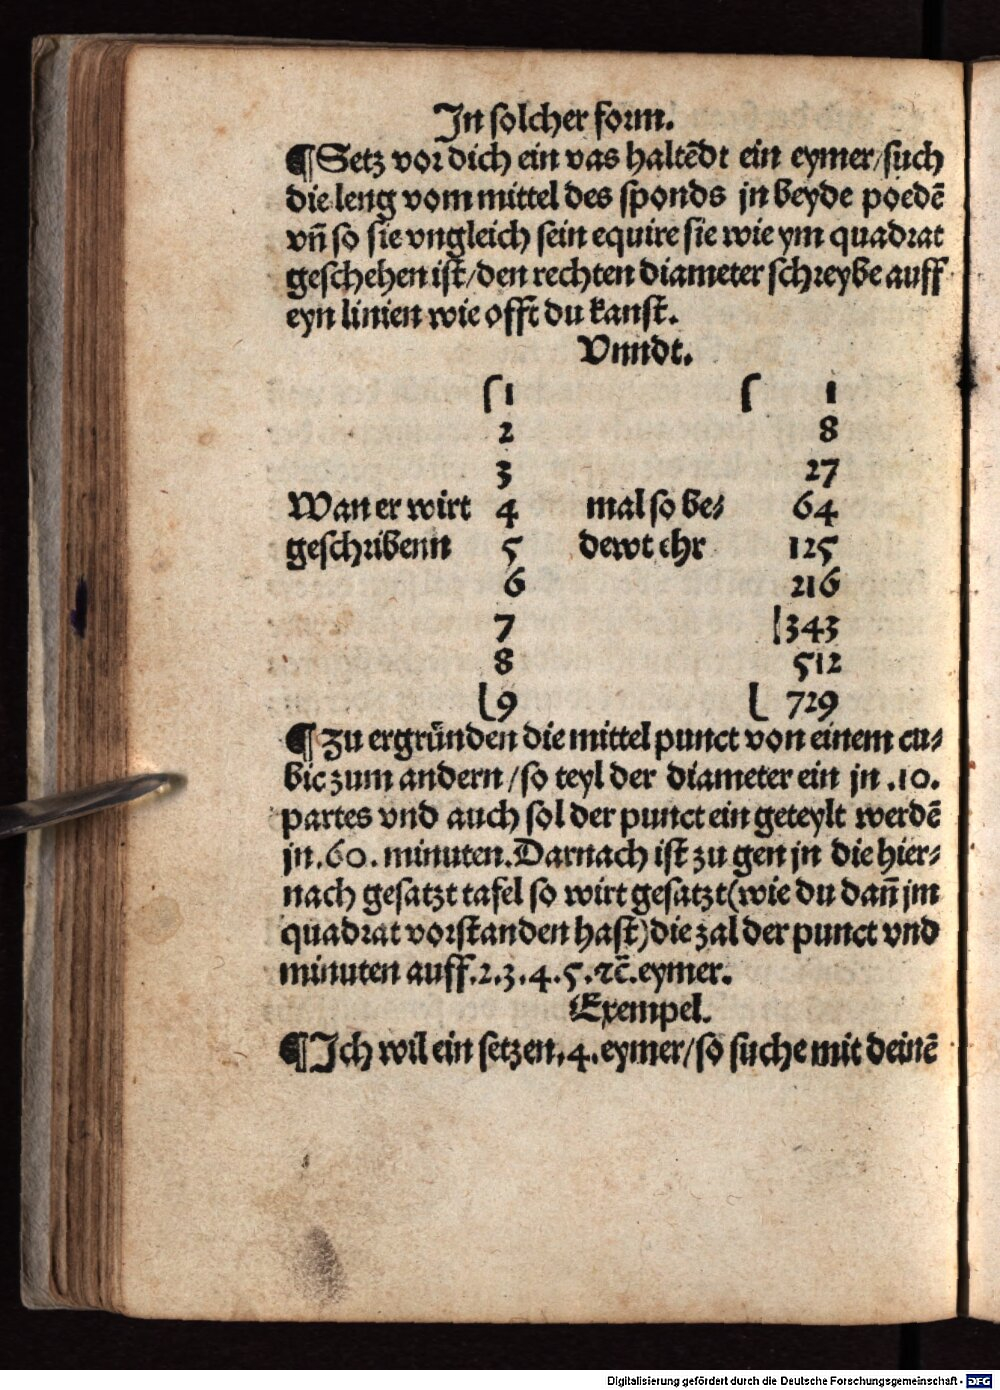 In solcher form.
¶ Setz vor dich ein vas haltẽdt ein eymer/such
die leng vom mittel des sponds jn beyde poedẽ
vñ so sie vngleich sein equire sie wie ym quadrat
geschehen ist/den rechten diameter schreybe auff
eyn linien wie offt du kanst.
Vnndt.
1 1
2 8
3 27
Wan er wirt 4 mal so be⸗ 64
geschribenn 5 dewt ehr 125
6 216
7 343
8 512
9 729
¶ Zu ergründen die mittel punct von einem cu⸗
bic zum andern/so teyl der diameter ein jn .10.
partes vnd auch sol der punct ein geteylt werdẽ
jn.60. minuten.Darnach ist zu gen jn die hier⸗
nach gesatzt tafel so wirt gesatzt(wie du dañ jm
quadrat vorstanden hast)die zal der punct vnd
minuten auff.2.3.4.5.ꝛc̃.eymer.
Exempel.
¶ Ich wil ein setzen.4.eymer/so suche mit deinẽ
Digitalisierung gefördert durch die Deutsche Forschungsgemeinschaft - DFG